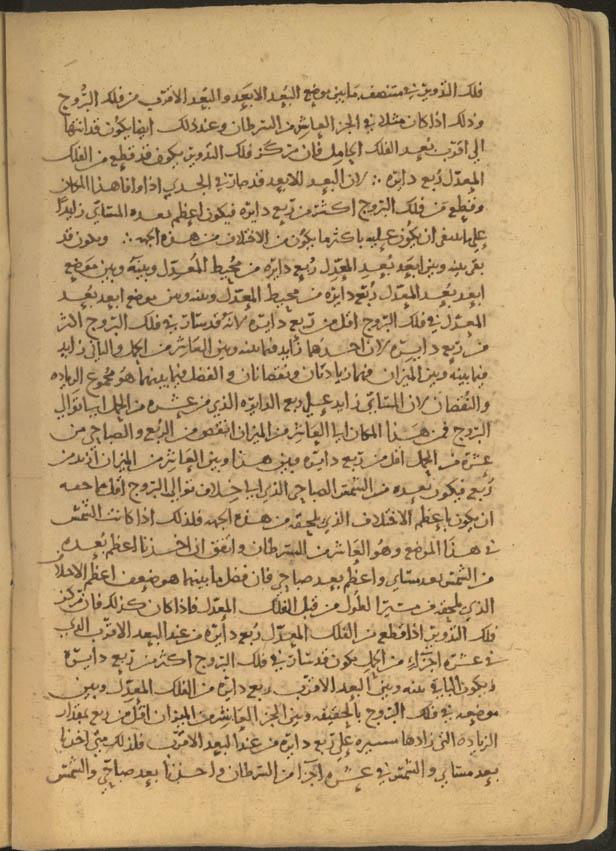 فلك التدوير في منتصف ما بين موضع البعد الابعد والبعد الاقرب من فلك البروج
وذلك اذا كان مثلا في الجزء العاشر من السرطان وعند ذلك ايضا يكون قد انتها
الى اقرب بعد الفلك الحامل فان مركز فلك التدوير يكون قد قطع من الفلك
المعدل ربع دايره لان البعد الابعد قد صار في الجدي اذا وافا هذا المكان
وقطع من فلك البروج اكثر من ربع دايره فيكون اعظم بعده المسائي زايدا
على ما ينبغي ان يكون عليه باكثر ما يكون من الاختلاف من هذه الجهه ويكون قد
بقى بينه وبين ابعد بعد المعدل ربع دايره من محيط المعدل وبينه وبين موضع
ابعد بعد المعدل ربع دايره من محيط المعدل وبينه وبين موضع ابعد بعد
المعدل في فلك البروج اقل من ربع دايره لانه قد سار في فلك البروج اكثر
من ربع دايره لان احدهما زايد فيما بينه وبين العاشر من الحمل والثاني زايد
فيما بينه وبين الميزان فهما زيادتان ونقصانان والفضل فيما بينهما هو مجموع الزياده
والنقصان لان المسائي زايد على ربع الدايره الذي من عشره من الحمل الى توالي
البروج فمن هذا المكان الى العاشر من الميزان انقص من الربع والصباحي من
عشره من الحمل اقل من ربع دايره وبين هذا وبين العاشر من الميزان ازيد من
ربع فيكون بعده من الشمس الصباحي الذي الى خلاف توالي البروج اقل مما حقه
ان يكون باعظم الاختلاف الذي يلحقه من هذه الجهه فلذلك اذا كانت الشمس
في هذا الموضع وهو العاشر من السرطان واتفق ان اخذنا اعظم بعده
من الشمس بعد مسائي واعظم بعد صباحي فان فضل ما بينهما هو ضعف اعظم الاختلاف
الذي يلحقه في مسير الطول من قبل الفلك المعدل فاذا كان كذلك فان مركز
فلك التدوير اذا قطع من الفلك المعدل ربع دايره من عند البعد الاقرب الذي
في عشرة اجزاء من الحمل يكون قد سار في فلك البروج اكثر من ربع دايره
ويكون الباقي بينه وبين البعد الاقرب ربع دايره من الفلك المعدل وبين
موضعه في فلك البروج بالحقيقه وبين الجزء العاشر من الميزان اقل من ربع بمقدار
الزيادة التي زادها مسيره على ربع دايره من عند البعد الاقرب فلذلك متى اخذنا
بعد مسائي والشمس في عشره اجزا من السرطان واخذنا بعد صباحي والشمس